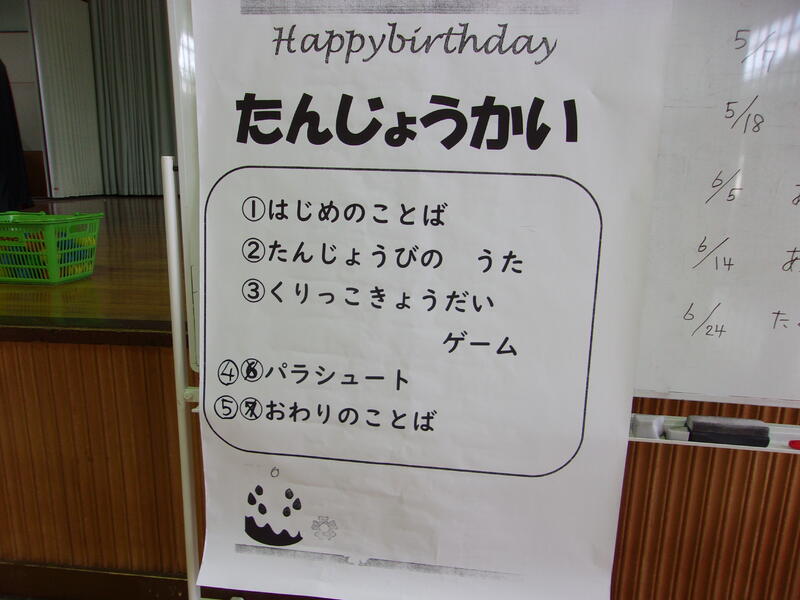 Happybirthday
たんじょうかい
①はじめのことば
②たんじょうびの　うた
③くりっこきょうだい
ゲーム
④パラシュート
⑤おわりのことば
5/17
5/18
6/5
6/14 あ
6/24 た